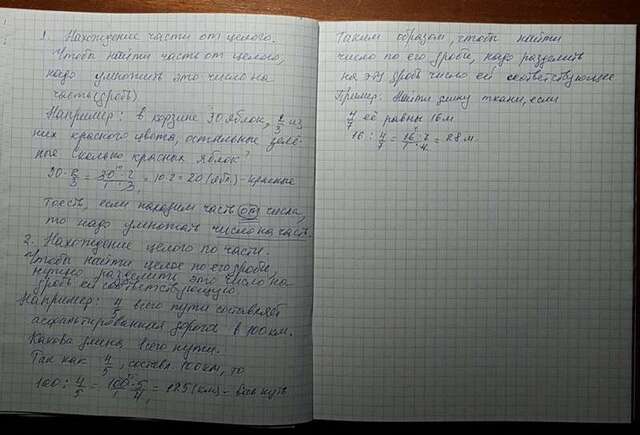 1. Нахождение части от целого.
Чтобы найти часть от целого,
надо умножить это число на
часть (дробь)
Например: в корзине 30 яблок, 2/3 из
них красного цвета, остальные зелё-
ные. Сколько красных яблок?
30 · 2/3 = 30 · 2 / 1 · 3 = 10 · 2 = 20 (ябл) - красные
тоесть, если находим часть от числа,
то надо умножать число на часть.
2. Нахождение целого по части.
Чтобы найти целое по его дроби,
нужно разделить это число на
дробь ей соответствующую
Например: 4/5 всего пути составляет
асфальтированная дорога в 100 км.
Какова длина всего пути.
Так как 4/5, составл 100 км, то
100 : 4/5 = 100 · 5 / 1 · 4 = 125 (км) - весь путь
Таким образом, чтобы найти
число по его дроби, надо разделить
на эту дробь число ей соответствующее
Пример: Найти длину ткани, если
4/7 её равны 16 м
16 : 4/7 = 16 · 7 / 1 · 4 = 28 м.